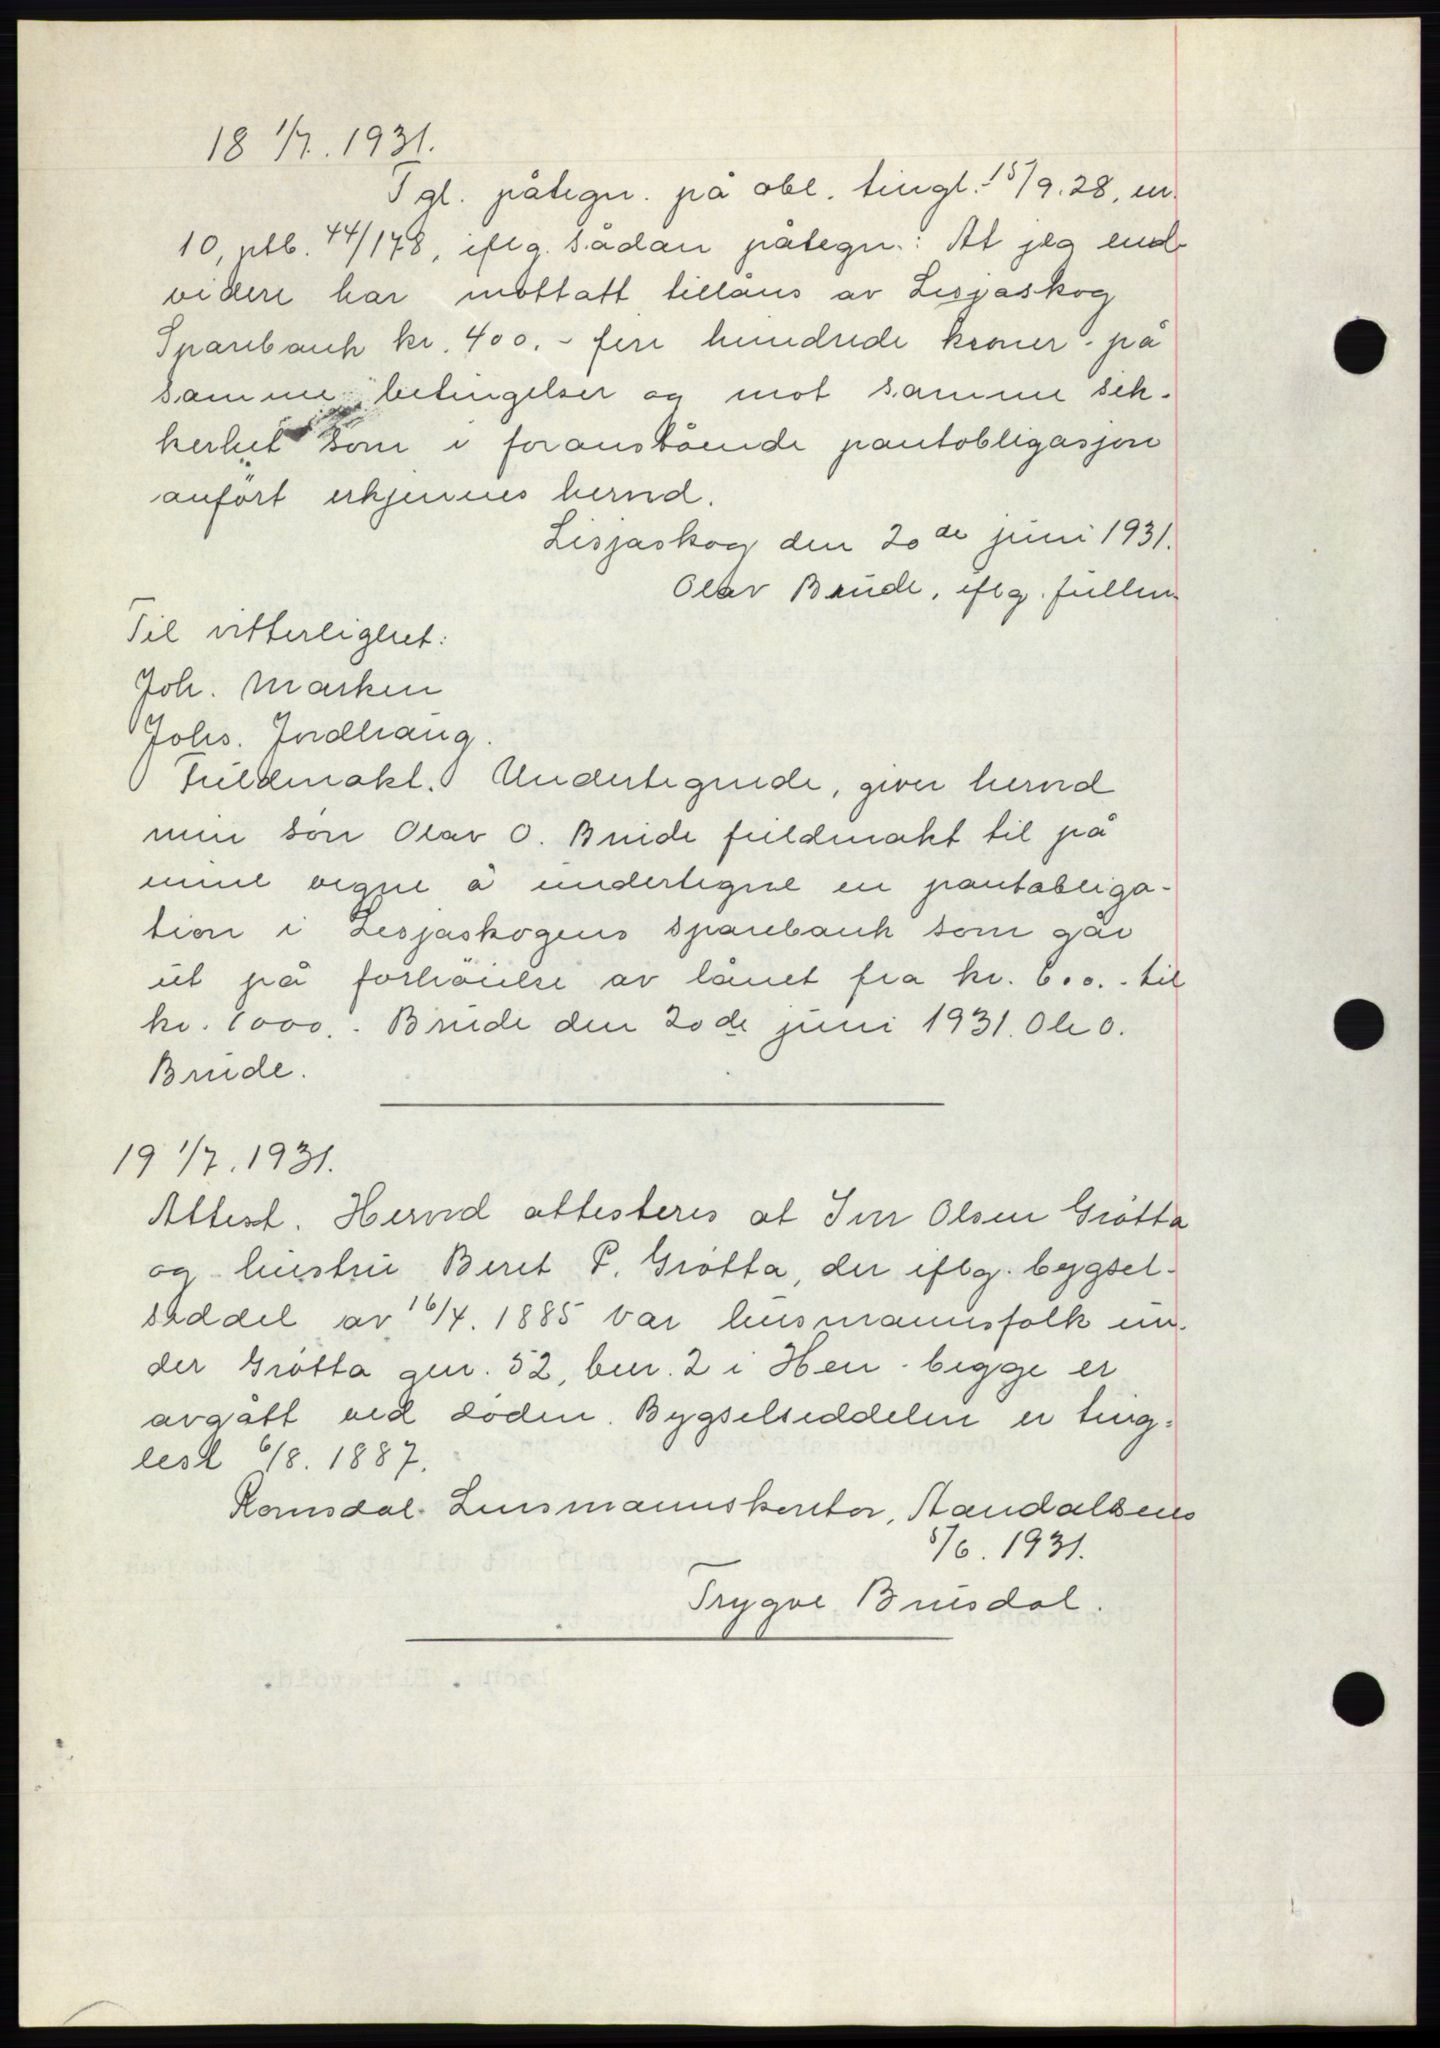 18 1/7. 1931.
Tgl. påtegn. på obl. tingl. 15/9. 28, nr.
10, ptb. 44/178, iflg. sådan påtegn.: At jeg end-
videre har mottatt tillåns av Lesjaskog
Sparebank kr. 400.- fire hundrede kroner - på
samme betingelser og mot samme sik-
kerhet som i foranstående pantobligasjon
anført erkjennes herved.
Lesjaskog den 20de juni 1931.
Olav Brude, iflg. fullm.
Til vitterlighet:
Joh. Marken
Johs. Jordhaug.
Fuldmakt. Undertegnede, giver herved
min søn Olav O. Brude fuldmakt til på
mine vegne å undertegne en pantobliga-
tion i Lesjaskogens sparebank som går
ut på forhøielse av lånet fra kr. 600.- til
kr. 1000.- Brude den 20de juni 1931. Ole O.
Brude.
19 1/7. 1931.
Attest. Herved attesteres at Iver Olsen Grøtta
og hustru Beret P. Grøtta, der iflg. bygsel-
seddel av 16/4. 1885 var husmannsfolk un-
der Grøtta gnr. 52, bnr. 2 i Hen - begge er
avgått ved døden. Bygselseddelen er ting-
lest 6/8. 1887.
Romsdal Lensmannskontor, Aandalsnes
5/6. 1931.
Trygve Brusdal.